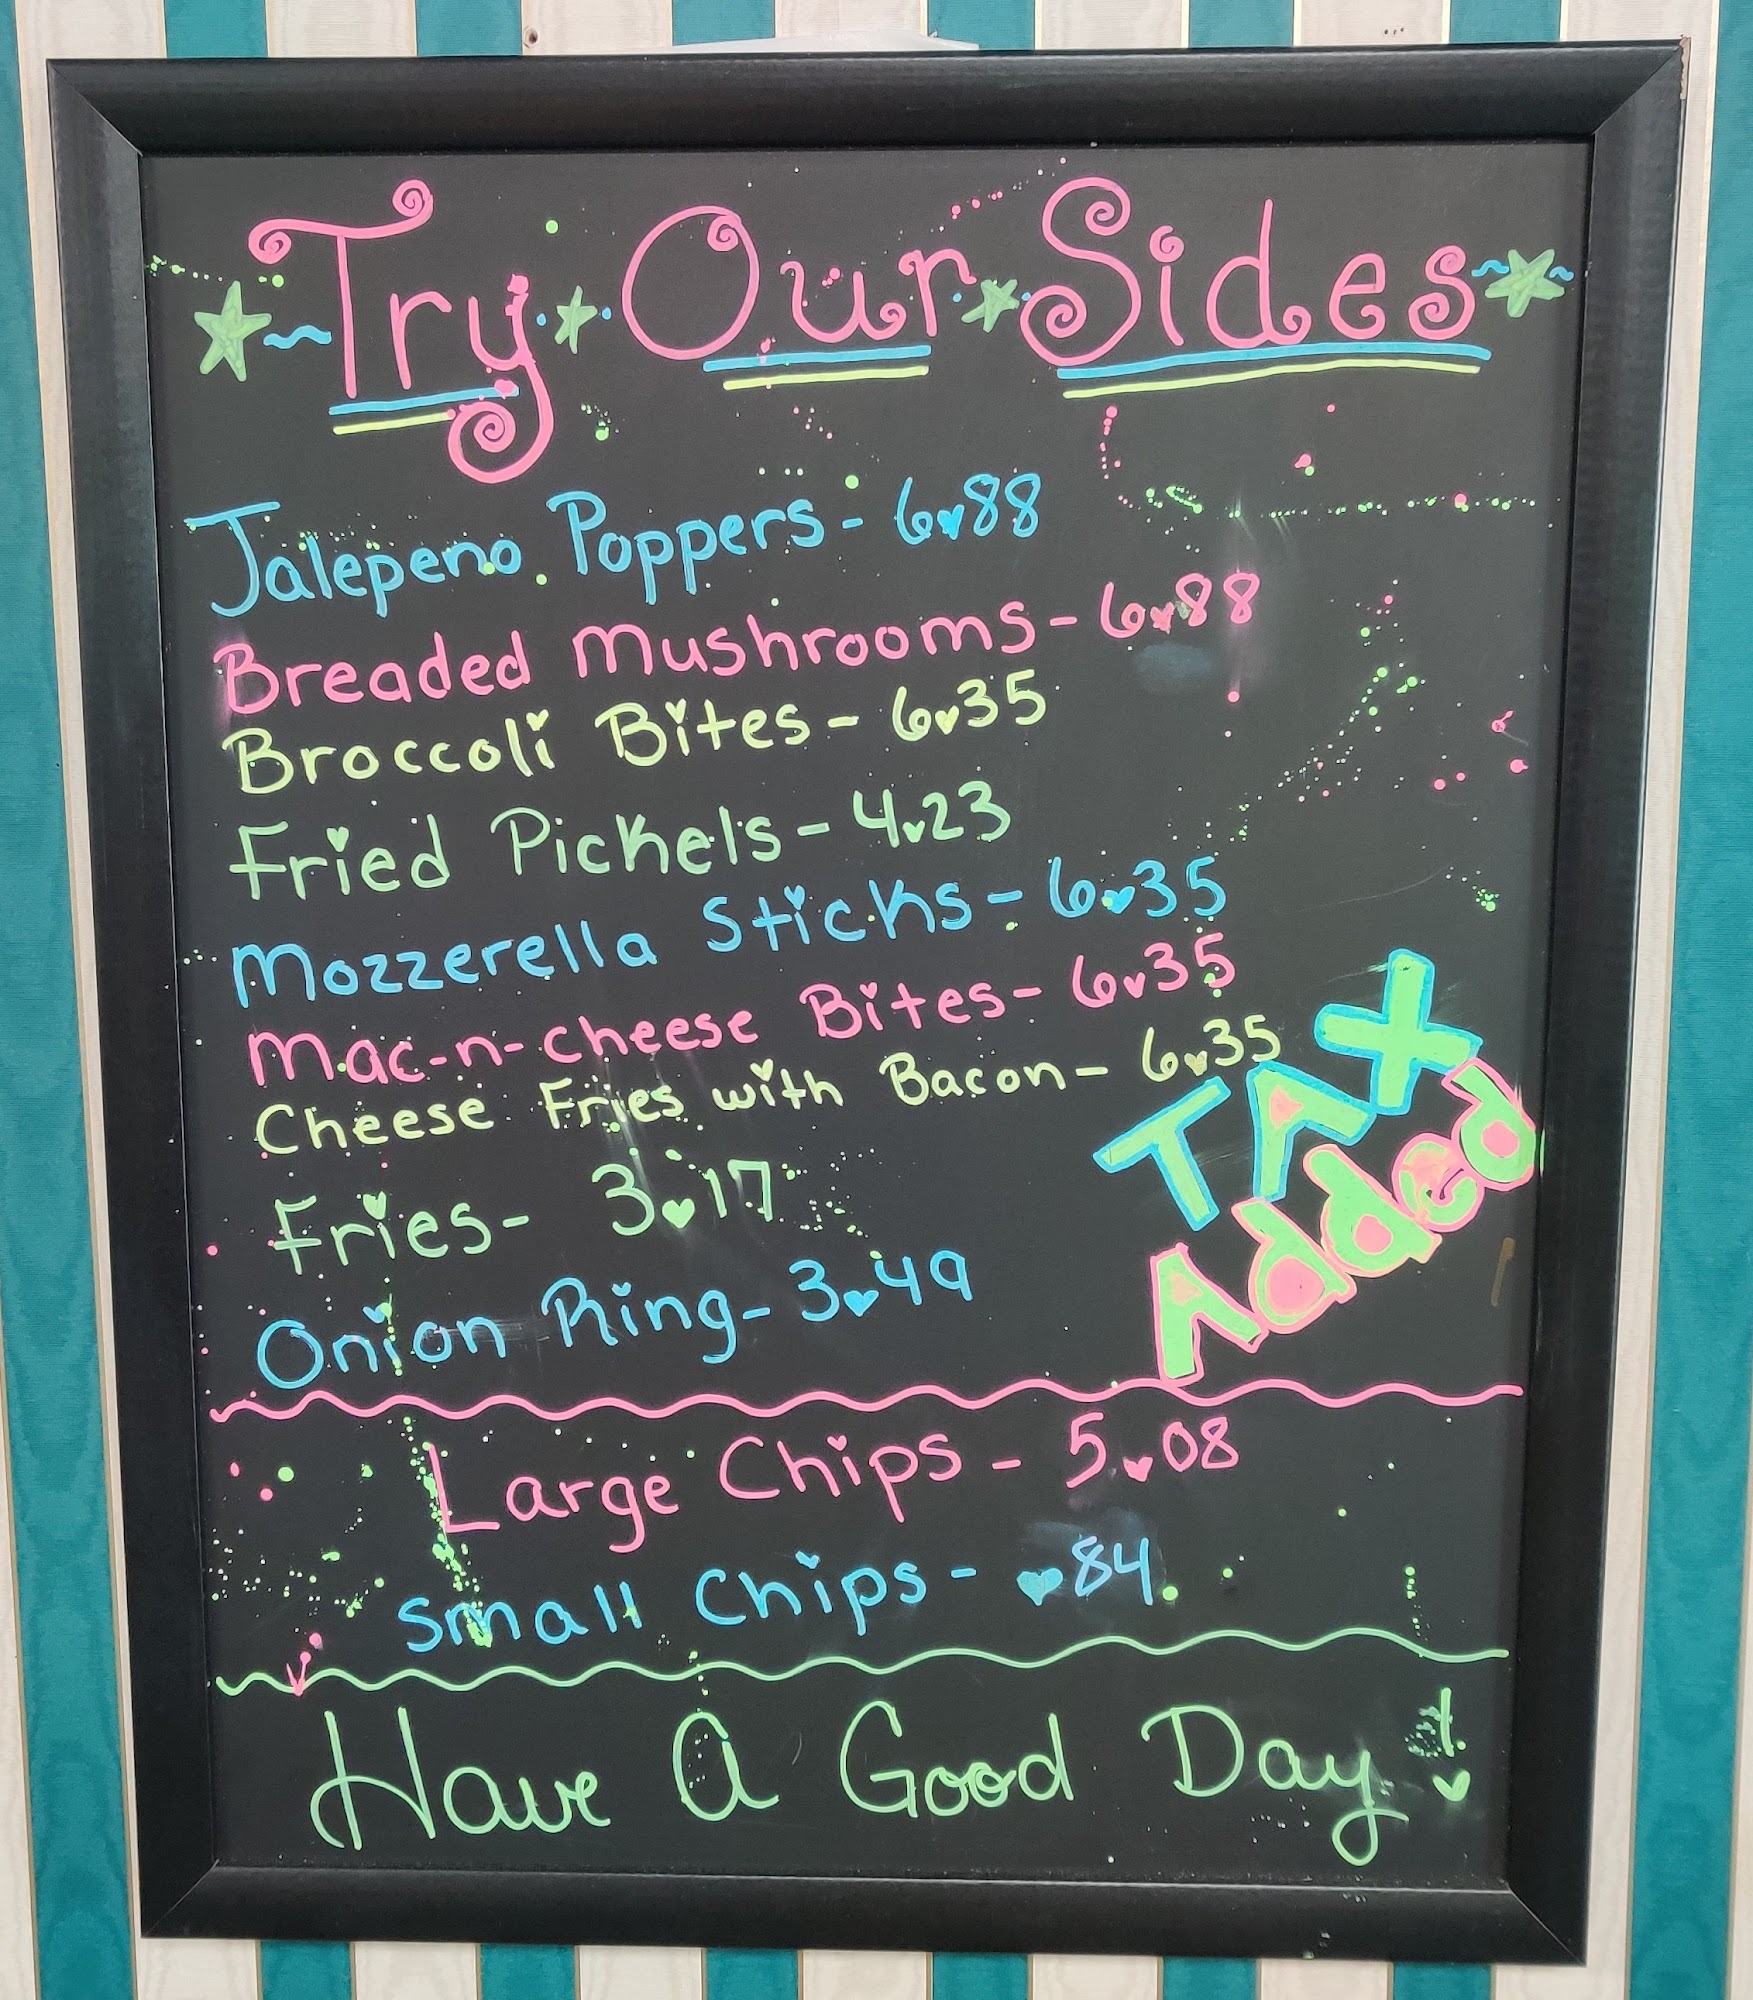 Try Our Sides
Jalepeno Poppers - 6.88
Breaded Mushrooms - 6.88
Broccoli Bites - 6.35
Fried Pickels - 4.23
Mozzerella Sticks - 6.35
Mac-n-cheese Bites - 6.35
Cheese Fries with Bacon - 6.35
Fries - 3.17
Onion Ring - 3.49
TAX
Added
Large Chips - 5.08
Small Chips - .84
Have A Good Day!